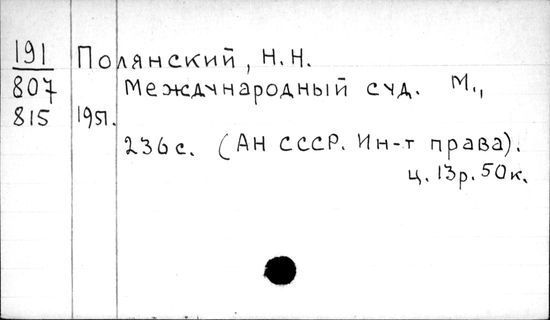 191 Полянский, Н.Н.
807 Международный суд. М.,
815 1951.
236 с. (АН СССР. Ин-т права).
ц. 13р. 50к.